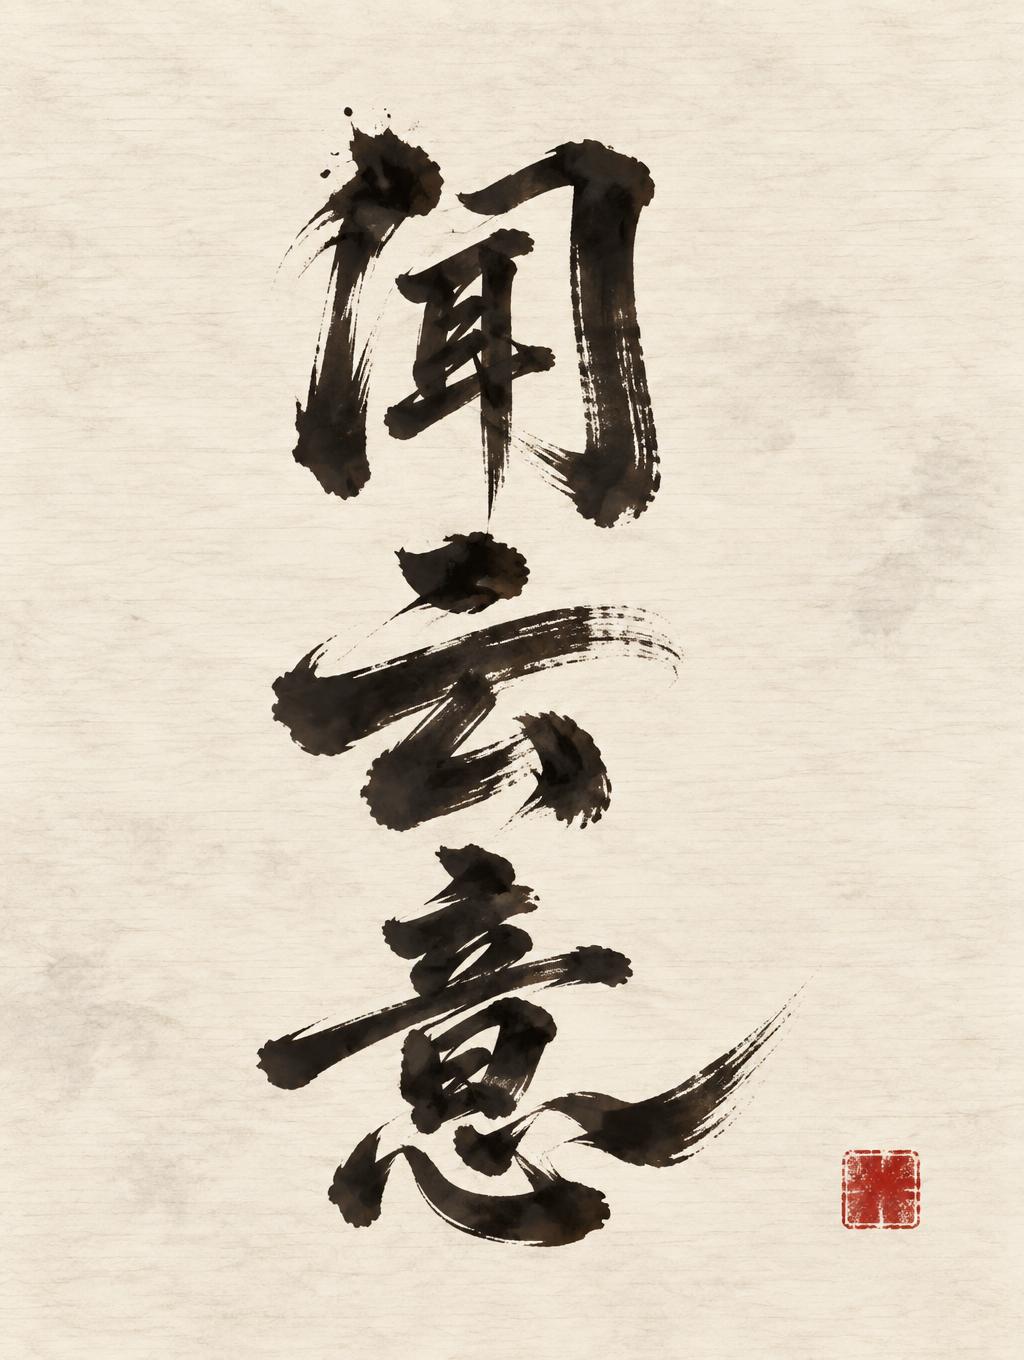 闻云意